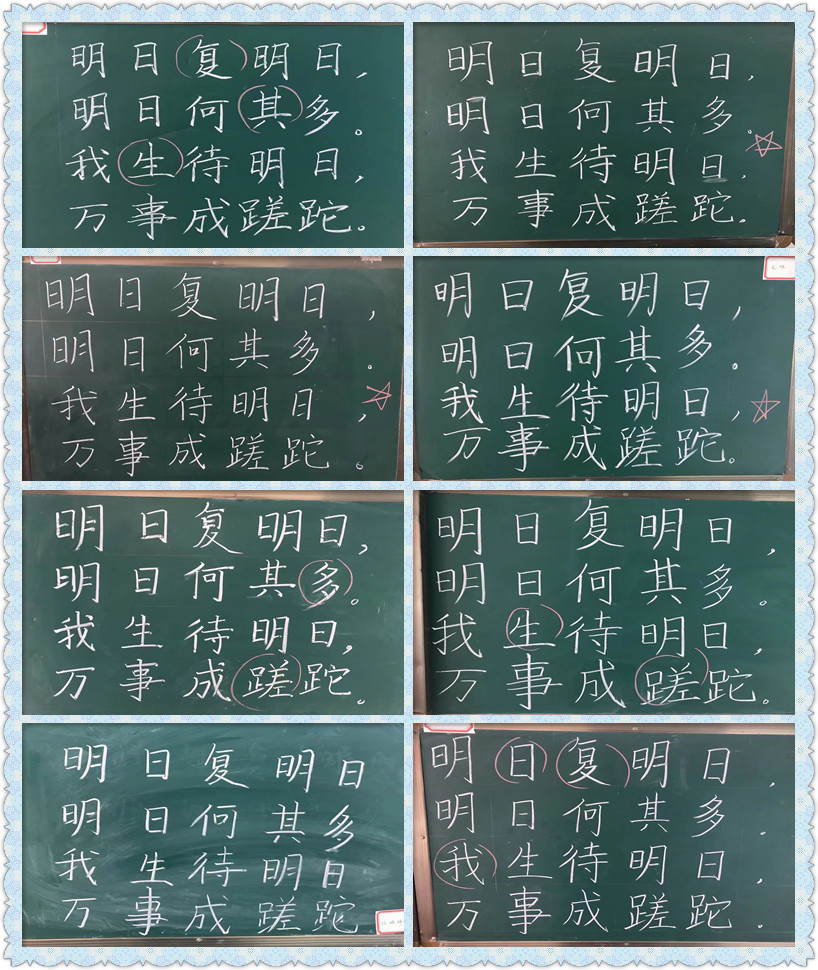 明日复明日，
明日何其多。
我生待明日，
万事成蹉跎。
明日复明日，
明日何其多。
我生待明日，
万事成蹉跎。
明日复明日，
明日何其多。
我生待明日，
万事成蹉跎。
明日复明日，
明日何其多。
我生待明日，
万事成蹉跎。
明日复明日，
明日何其多。
我生待明日，
万事成蹉跎。
明日复明日，
明日何其多。
我生待明日，
万事成蹉跎。
明日复明日
明日何其多
我生待明日
万事成蹉跎
明日复明日，
明日何其多．
我生待明日，
万事成蹉跎．